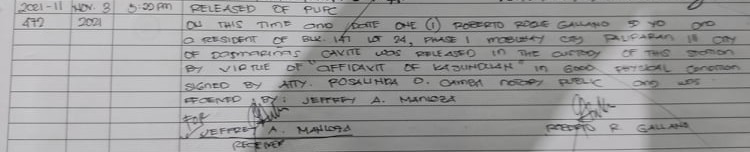 2021-11 NOV. 3 5:20 PM RELEASED OF PUPC
472 2021 ON THIS TIME AND DATE ONE (1) ROBERTO ROQUE GALLANO 5 YO AND
A RESIDENT OF BLK. 141 LOT 24, PHASE 1 CITY PALIPARAN III CITY
OF DASMARIÑAS CAVITE WAS RELEASED IN THE CUSTODY OF THIS STATION
BY VIRTUE OF "AFFIDAVIT OF KASUNDUAN" IN GOOD PHYSICAL CONDITION
SIGNED BY ATTY. ROSALINDA D. NOTARY PUBLIC AND WAS
BY: JEFFREY A. MANLOZA
FOR
JEFFREY A. MANLOZA ROBERTO R GALLANO
RECEIVER